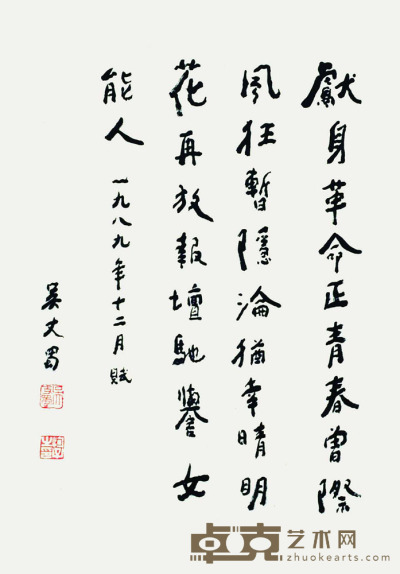 獻身革命正青春曾際
風狂暫隱淪猶幸晴明
花再放報壇馳譽女
能人 一九八九年十二月賦
吴丈蜀
卓克艺术网
zhuokearts.com